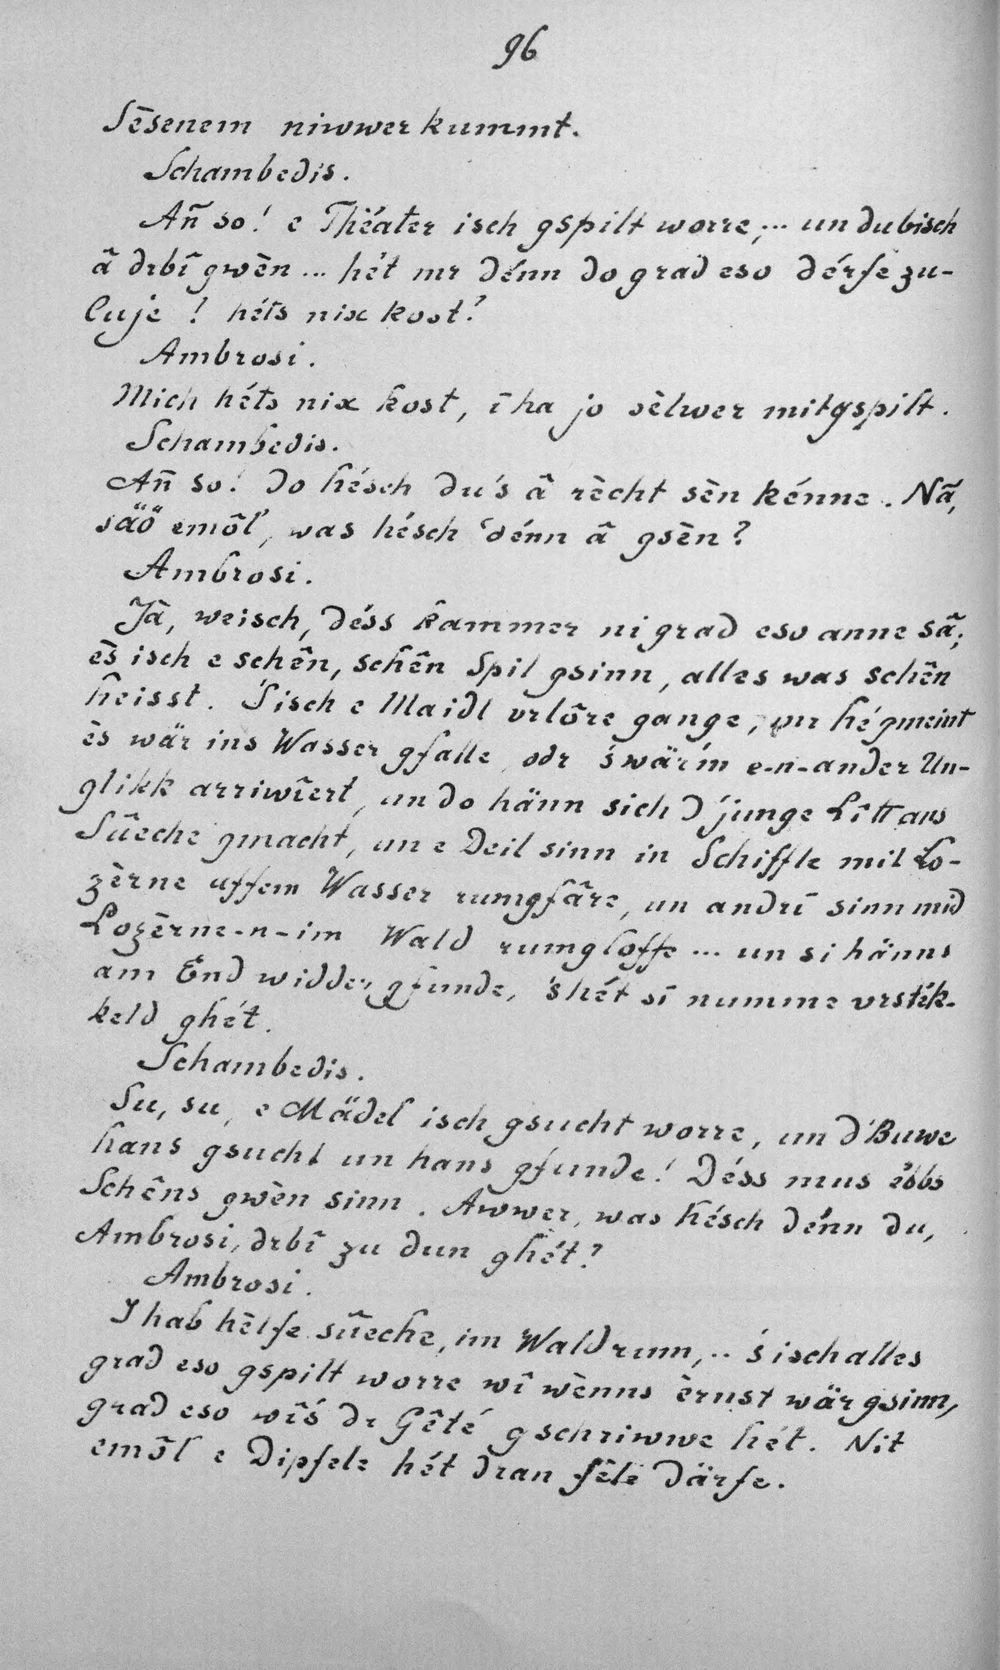 96
Sèsenem niwwer kummt.
Schambedis.
Añ so! e Théater isch gspilt worre;... un du bisch
â drbî gwèn... hét mr dénn do grad eso dérfe zu-
luje! héts nix kost?
Ambrosi.
Mich héts nix kost, ī ha jo sèlwer mitgspilt.
Schambedis.
Añ so! Do hésch du's â rècht sèn kénne. Nã,
säö emôl, was hésch dénn â gsèn?
Ambrosi.
Jà, weisch, déss kammer ni grad eso anne sã;
ès isch e schên, schên Spil gsinn, alles was schên
heisst. S'isch e Maidl vrlôre gange, mr hé gmeint
ès wär ins Wasser gfalle odr s'wär'm e-n-ander Un-
glikk arriwîert, un do hänn sich d'junge Lîtt aus
Sûeche gmacht, un e Deil sinn in Schiffle mit Lo-
zèrne uffem Wasser rumgfâre, un andrī sinn mid
Lozèrne-n-im Wald rumgloffe... un si hänns
am End widder gfunde, 's hét sī numme vrsték-
keld ghét.
Schambedis.
Su, su, e Mädel isch gsucht worre, un d'Buwe
hans gsucht un hans gfunde! Déss mus ébbs
Schêns gwèn sinn. Awwer, was hésch dénn du,
Ambrosi, drbî zu dun ghét?
Ambrosi.
I hab hèlfe sûeche, im Wald runn,.. s'isch alles
grad eso gspilt worre wî wènns èrnst wär gsinn,
grad eso wîs' dr Gêté gschriwwe hét. Nit
emôl e Dipfele hét dran fêle därfe.